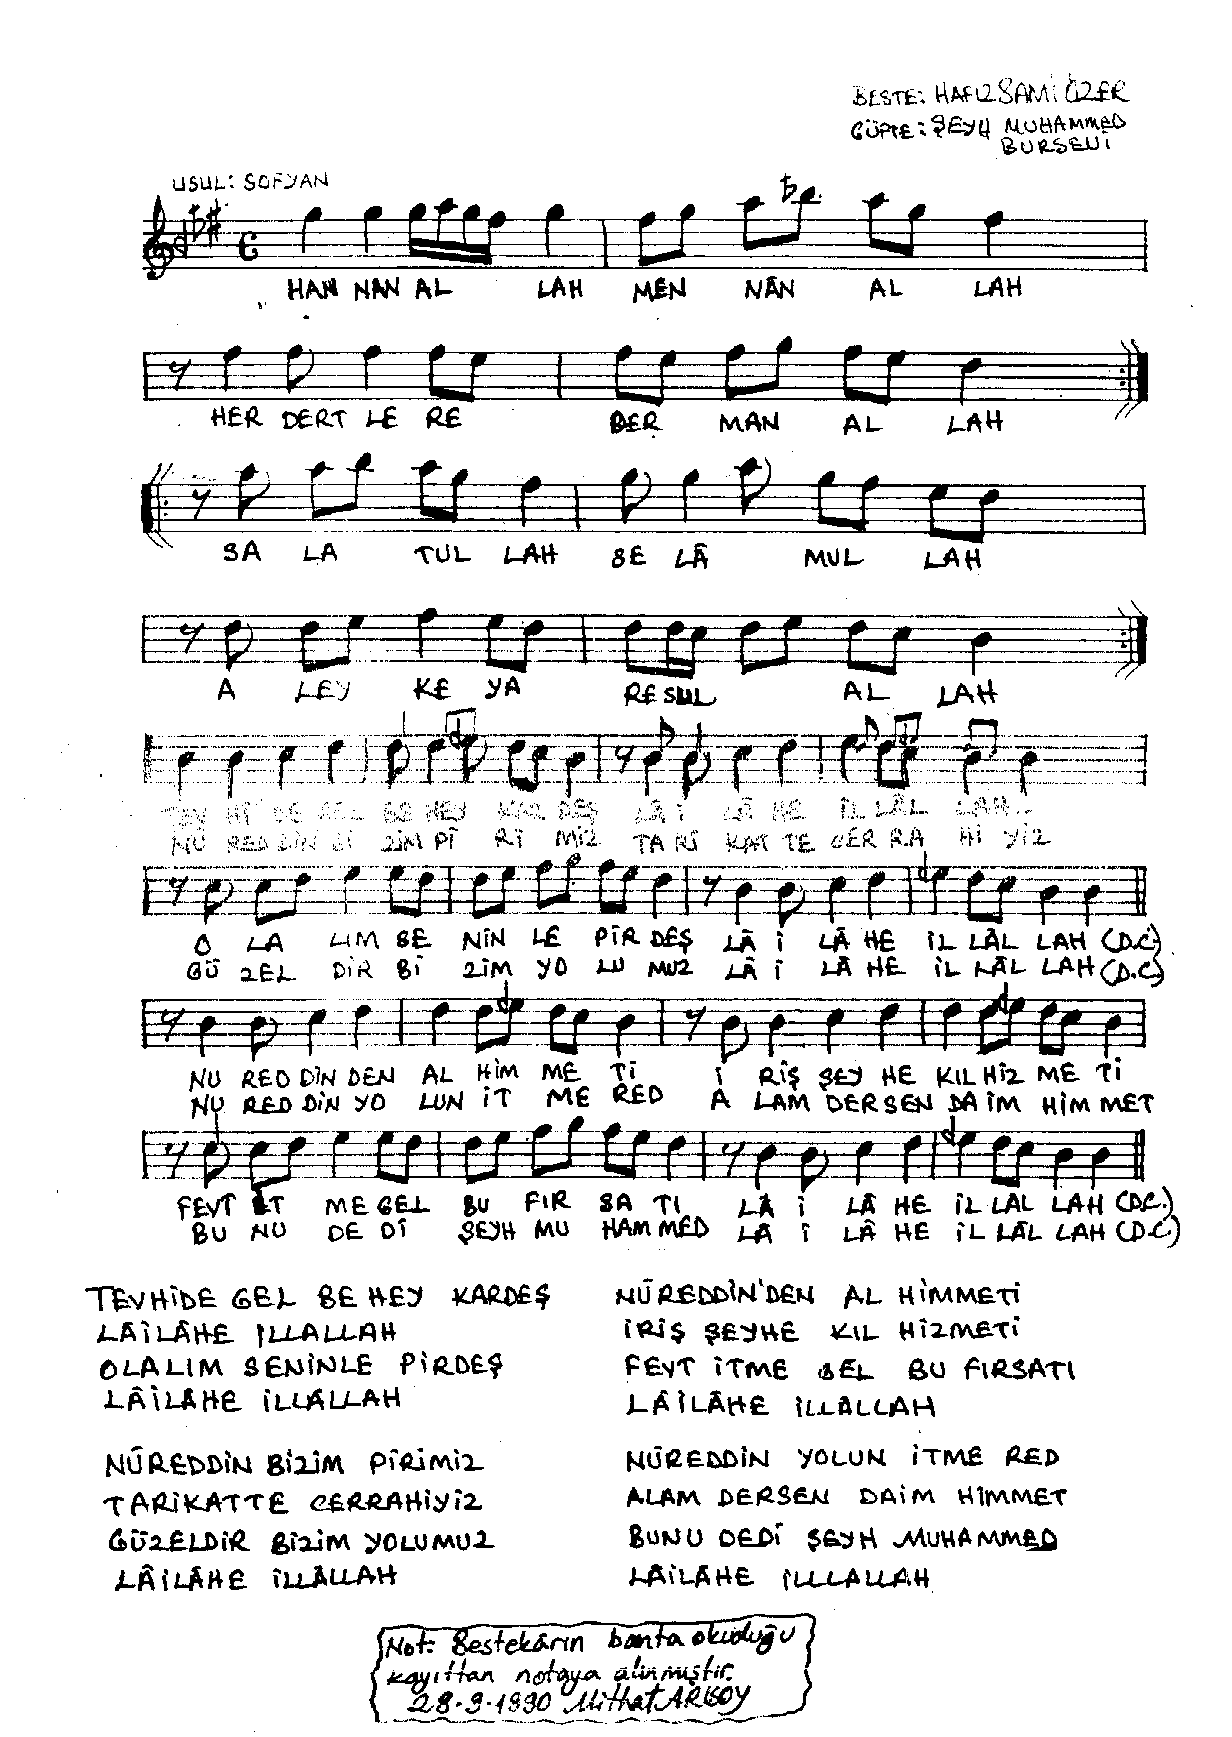 BESTE: HAFIZ SAMİ ÖZER
GÜFTE: ŞEYH MUHAMMED
BURSEVİ
USUL: SOFYAN
HAN NAN AL LAH MEN NÂN AL LAH
HER DERT LE RE DER MAN AL LAH
SA LA TUL LAH SE LÂ MUL LAH
A LEY KE YA RESUL AL LAH
TEV Hİ DE GEL BE HEY KAR DEŞ LÂ İ LÂ HE İL LÂL LAH
NU RED DİN Bİ ZİM PÎ Rİ MİZ TA Rİ KAT TE CER RA Hİ YİZ
O LA LIM SE NİN LE PİR DEŞ LÂ İ LÂ HE İL LÂL LAH (D.C)
GÜ ZEL DİR Bİ ZİM YO LU MUZ LÂ İ LÂ HE İL LÂL LAH (D.C)
NU RED DİN DEN AL HİM ME Tİ İ RİŞ ŞEY HE KIL HİZ ME Tİ
NU RED DİN YO LUN İT ME RED A LAM DER SEN DA İM HİM MET
FEVT ET ME GEL BU FIR SA TI LÂ İ LÂ HE İL LAL LAH (D.C.)
BU NU DE DÎ ŞEYH MU HAM MED LÂ İ LÂ HE İL LÂL LAH (D.C)
TEVHİDE GEL BE HEY KARDEŞ
LÂİLÂHE İLLALLAH
OLALIM SENİNLE PİRDEŞ
LÂİLÂHE İLLÂLLAH
NÛREDDİN BİZİM PİRİMİZ
TARİKATTE CERRAHİYİZ
GÜZELDİR BİZİM YOLUMUZ
LÂİLÂHE İLLÂLLAH
NÛREDDİN'DEN AL HİMMETİ
İRİŞ ŞEYHE KIL HİZMETİ
FEVT İTME GEL BU FIRSATI
LÂİLÂHE İLLÂLLAH
NÛREDDİN YOLUN İTME RED
ALAM DERSEN DAİM HİMMET
BUNU DEDÎ ŞEYH MUHAMMED
LÂİLÂHE İLLLALLAH
Not: Bestekârın banta okuduğu
kayıttan notaya alınmıştır.
28-9-1990 Mithat ARISOY